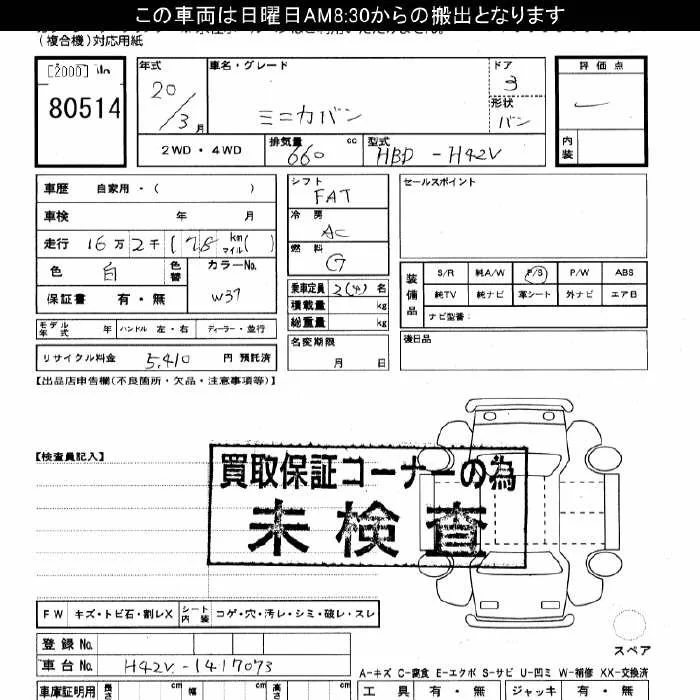 この車両は日曜日AM8:30からの搬出となります
(複合機)対応用紙
[2000]
80514
年式
20/3月
車名・グレード
ミニカバン
ドア
3
形状
バン
評価点
内装
2WD・4WD
排気量
660 cc
型式
HBD-H42V
車歴 自家用・( )
車検 年 月
走行 16万2千178 km マイル( )
色 白 色替
カラーNo.
W37
保証書 有・無
シフト
FAT
冷房
AC
燃料
G
乗車定員 2(4)名
積載量 kg
総重量 kg
セールスポイント
装備品
S/R 純A/W P/S P/W ABS
純TV 純ナビ 革シート 外ナビ エアB
ナビ型番:
モデル年式 年 ハンドル 左・右 ディーラー・並行
リサイクル料金 5,410 円 預託済
名変期限
月 日
後日品
【出品店申告欄(不良箇所・欠品・注意事項等)】
【検査員記入】
買取保証コーナーの為
未検査
FW キズ・トビ石・割レX シート内装 コゲ・穴・汚レ・シミ・破レ・スレ
登録No.
車台No. H42V-1417073
スペア
A-キズ C-腐食 E-エクボ S-サビ U-凹ミ W-補修 XX-交換済
車庫証明用 長さ cm 幅 cm 高さ cm
工具 有・無 ジャッキ 有・無